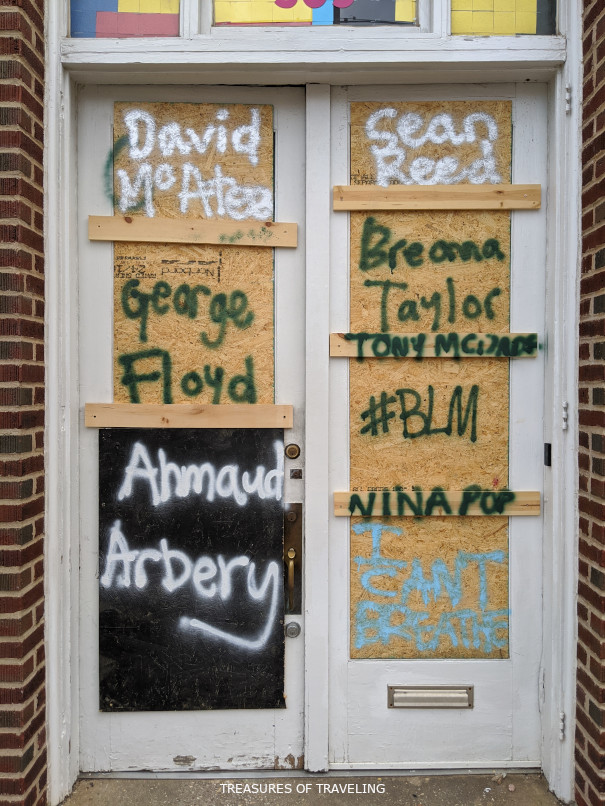 David
McAtee
George
Floyd
Ahmaud
Arbery
Sean
Reed
Breonna
Taylor
TONY MCDADE
#BLM
NINA POP
I
CAN'T
BREATHE
TREASURES OF TRAVELING